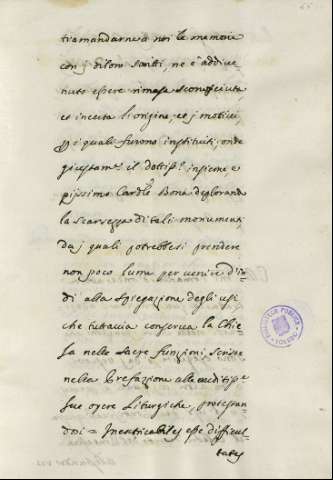 tramandarne a noi le memorie
con j di loro scritti, ne è addive
nuto essere rimasa sconosciuta,
ed incerta l'origine, ed j motivi,
j quali furono instituiti, onde
giustam.^e il dottiss.^o insieme e
pijssimo Card.^le Bona deplorando
la scarsezza di tali monumenti,
da j quali potrebbesi prendere
non poco lume per venire d'in
di alla spiegazione degli usi
che tuttavia conserva la Chie
sa nelle sacre funzioni, scrisse
nella Prefazione alle eruditiss.^e
sue opere Liturgiche, protestan
dosi = Inextricabiles esse difficul
tates
BIBLIOTECA PUBLICA
TOLEDO